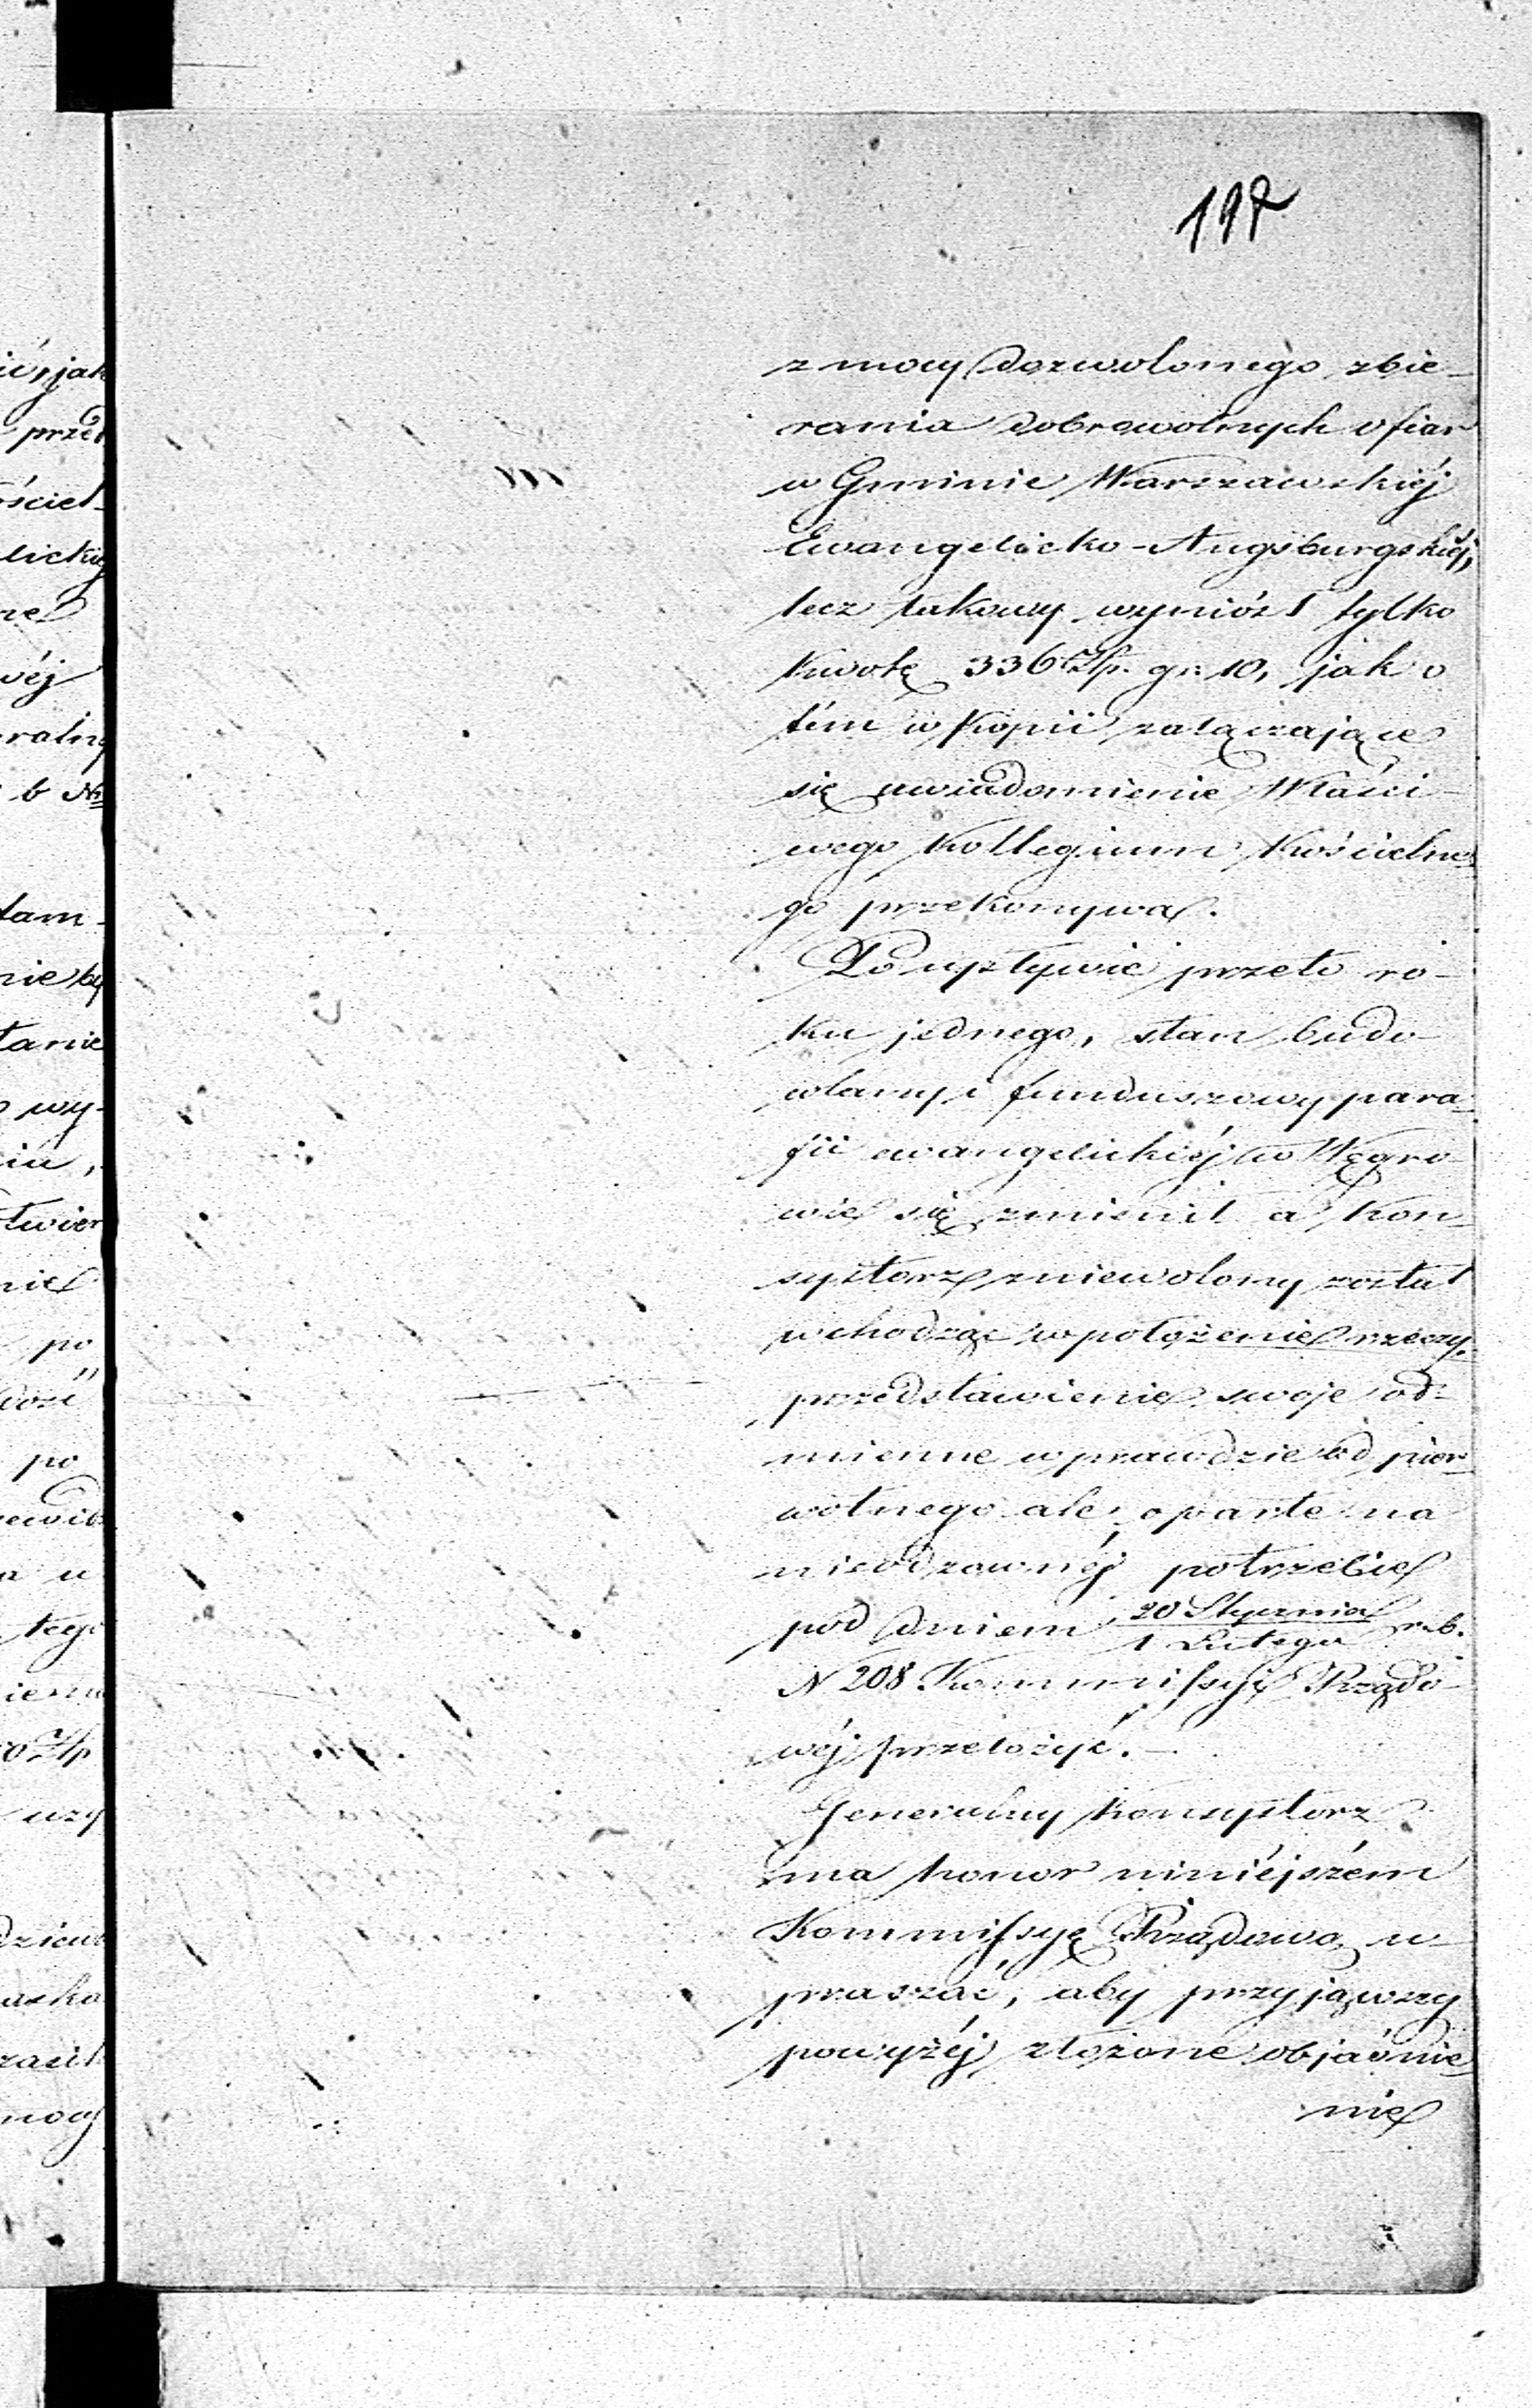 197
z mocy dozwolonego zbie-
rania dobrowolnych ofiar
w Gminie Warszawskiéj
Ewangelicko-Augsburgskiéj,
lecz takowy wyniósł tylko
kwotę 336 Złp. gr. 10, jak o
tém w kopii załączające
się uwiadomienie właści-
wego Kollegium Kościelne-
go przekonywa.
Po upływie przeto ro-
ku jednego, stan budo-
wlany i funduszowy para-
fii ewangelickiéj w Węgro-
wie się zmienił a Kon-
systorz zniewolony został
wchodząc w położenie rzeczy,
przedstawienie swoje od-
mienne wprawdzie od pier-
wotnego ale oparte na
nieodzownéj potrzebie
pod dniem 20 Stycznia / 1 Lutego r. b.
N 208 Kommissyi Rządo-
wéj przełożyć.—
Generalny Konsystorz
ma honor niniéjszém
Kommissyę Rządową u-
praszać, aby przyjąwszy
powyżéj złożone objaśnie-
nie